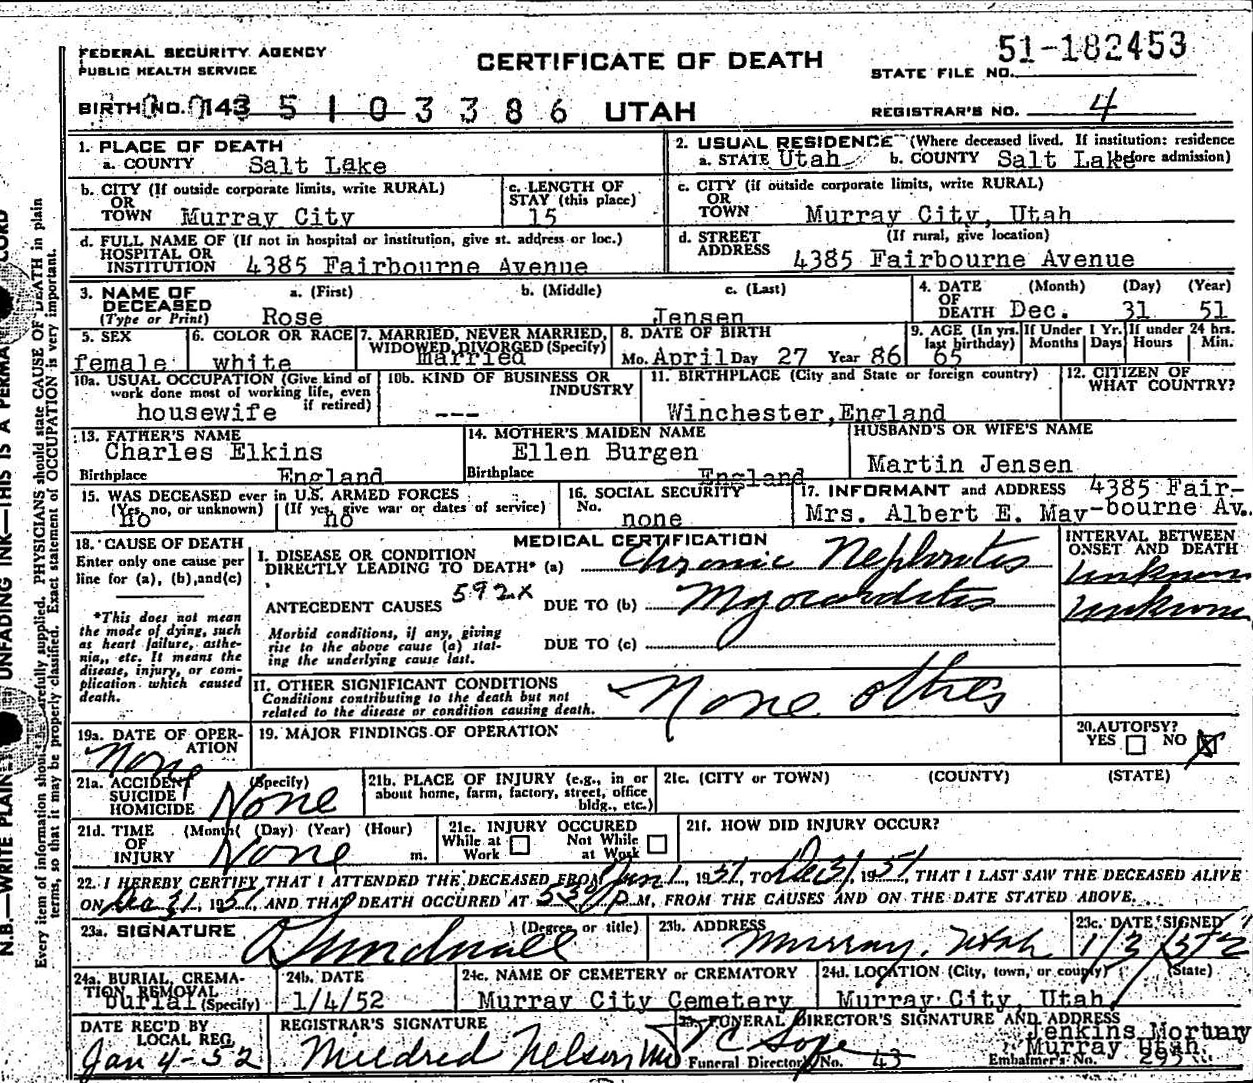 FEDERAL SECURITY AGENCY
PUBLIC HEALTH SERVICE
CERTIFICATE OF DEATH
STATE FILE NO. 51-182453
BIRTH NO. 143 5 1 0 3 3 8 6 UTAH
REGISTRAR'S NO. 4
1. PLACE OF DEATH
a. COUNTY Salt Lake
2. USUAL RESIDENCE (Where deceased lived. If institution: residence
a. STATE Utah b. COUNTY Salt Lake before admission)
b. CITY (If outside corporate limits, write RURAL)
OR
TOWN Murray City
c. LENGTH OF
STAY (this place)
15
c. CITY (if outside corporate limits, write RURAL)
OR
TOWN Murray City, Utah
d. FULL NAME OF (If not in hospital or institution, give st. address or loc.)
HOSPITAL OR
INSTITUTION 4385 Fairbourne Avenue
d. STREET (If rural, give location)
ADDRESS 4385 Fairbourne Avenue
3. NAME OF a. (First) b. (Middle) c. (Last)
DECEASED
(Type or Print) Rose Jensen
4. DATE (Month) (Day) (Year)
OF
DEATH Dec. 31 51
5. SEX
female
6. COLOR OR RACE
white
7. MARRIED, NEVER MARRIED,
WIDOWED, DIVORGED (Specify)
married
8. DATE OF BIRTH
Mo. April Day 27 Year 86
9. AGE (In yrs. last birthday)
65
If Under 1 Yr.
Months Days
If under 24 hrs.
Hours Min.
10a. USUAL OCCUPATION (Give kind of
work done most of working life, even
if retired)
housewife
10b. KIND OF BUSINESS OR
INDUSTRY
---
11. BIRTHPLACE (City and State or foreign country)
Winchester, England
12. CITIZEN OF
WHAT COUNTRY?
13. FATHER'S NAME
Charles Elkins
Birthplace England
14. MOTHER'S MAIDEN NAME
Ellen Burgen
Birthplace England
HUSBAND'S OR WIFE'S NAME
Martin Jensen
15. WAS DECEASED ever in U.S. ARMED FORCES
(Yes, no, or unknown) (If yes, give war or dates of service)
no no
16. SOCIAL SECURITY
No. none
17. INFORMANT and ADDRESS 4385 Fair-
Mrs. Albert E. May -bourne Av.
18. CAUSE OF DEATH
Enter only one cause per
line for (a), (b), and (c)
*This does not mean
the mode of dying, such
as heart failure, asthe-
nia,, etc. It means the
disease, injury, or com-
plication which caused
death.
MEDICAL CERTIFICATION
I. DISEASE OR CONDITION
DIRECTLY LEADING TO DEATH* (a) Chronic Nephritis
ANTECEDENT CAUSES 592x DUE TO (b) Myocarditis
Morbid conditions, if any, giving
rise to the above cause (a) stat-
ing the underlying cause last.
DUE TO (c)
INTERVAL BETWEEN
ONSET AND DEATH
Unknown
Unknown
II. OTHER SIGNIFICANT CONDITIONS
Conditions contributing to the death but not
related to the disease or condition causing death.
None other
19a. DATE OF OPER-
ATION
None
19. MAJOR FINDINGS OF OPERATION
20. AUTOPSY?
YES NO X
21a. ACCIDENT (Specify)
SUICIDE
HOMICIDE None
21b. PLACE OF INJURY (e.g., in or
about home, farm, factory, street, office
bldg., etc.)
21c. (CITY or TOWN) (COUNTY) (STATE)
21d. TIME (Month) (Day) (Year) (Hour)
OF
INJURY None m.
21e. INJURY OCCURED
While at Work Not While at Work
21f. HOW DID INJURY OCCUR?
22. I HEREBY CERTIFY THAT I ATTENDED THE DECEASED FROM 1, 1951, TO Dec 31, 1951, THAT I LAST SAW THE DECEASED ALIVE
ON Dec 31, 1951, AND THAT DEATH OCCURED AT 5 P M, FROM THE CAUSES AND ON THE DATE STATED ABOVE.
23a. SIGNATURE (Degree or title)
23b. ADDRESS Murray, Utah
23c. DATE SIGNED
1/3/52
24a. BURIAL, CREMA-
TION REMOVAL
burial (Specify)
24b. DATE
1/4/52
24c. NAME OF CEMETERY or CREMATORY
Murray City Cemetery
24d. LOCATION (City, town, or county) (State)
Murray City, Utah
DATE REC'D BY
LOCAL REG.
Jan 4-52
REGISTRAR'S SIGNATURE
Mildred Nelson
25. FUNERAL DIRECTOR'S SIGNATURE AND ADDRESS
Jenkins Mortuary
Murray Utah.
Funeral Director No. 43 Embalmer's No. 293
N.B.—WRITE PLAIN UNFADING INK—THIS IS A PERMA CORD
Every item of information should be carefully supplied. PHYSICIANS should state CAUSE OF DEATH in plain
terms, so that it may be properly classified. Exact statement of OCCUPATION is very important.